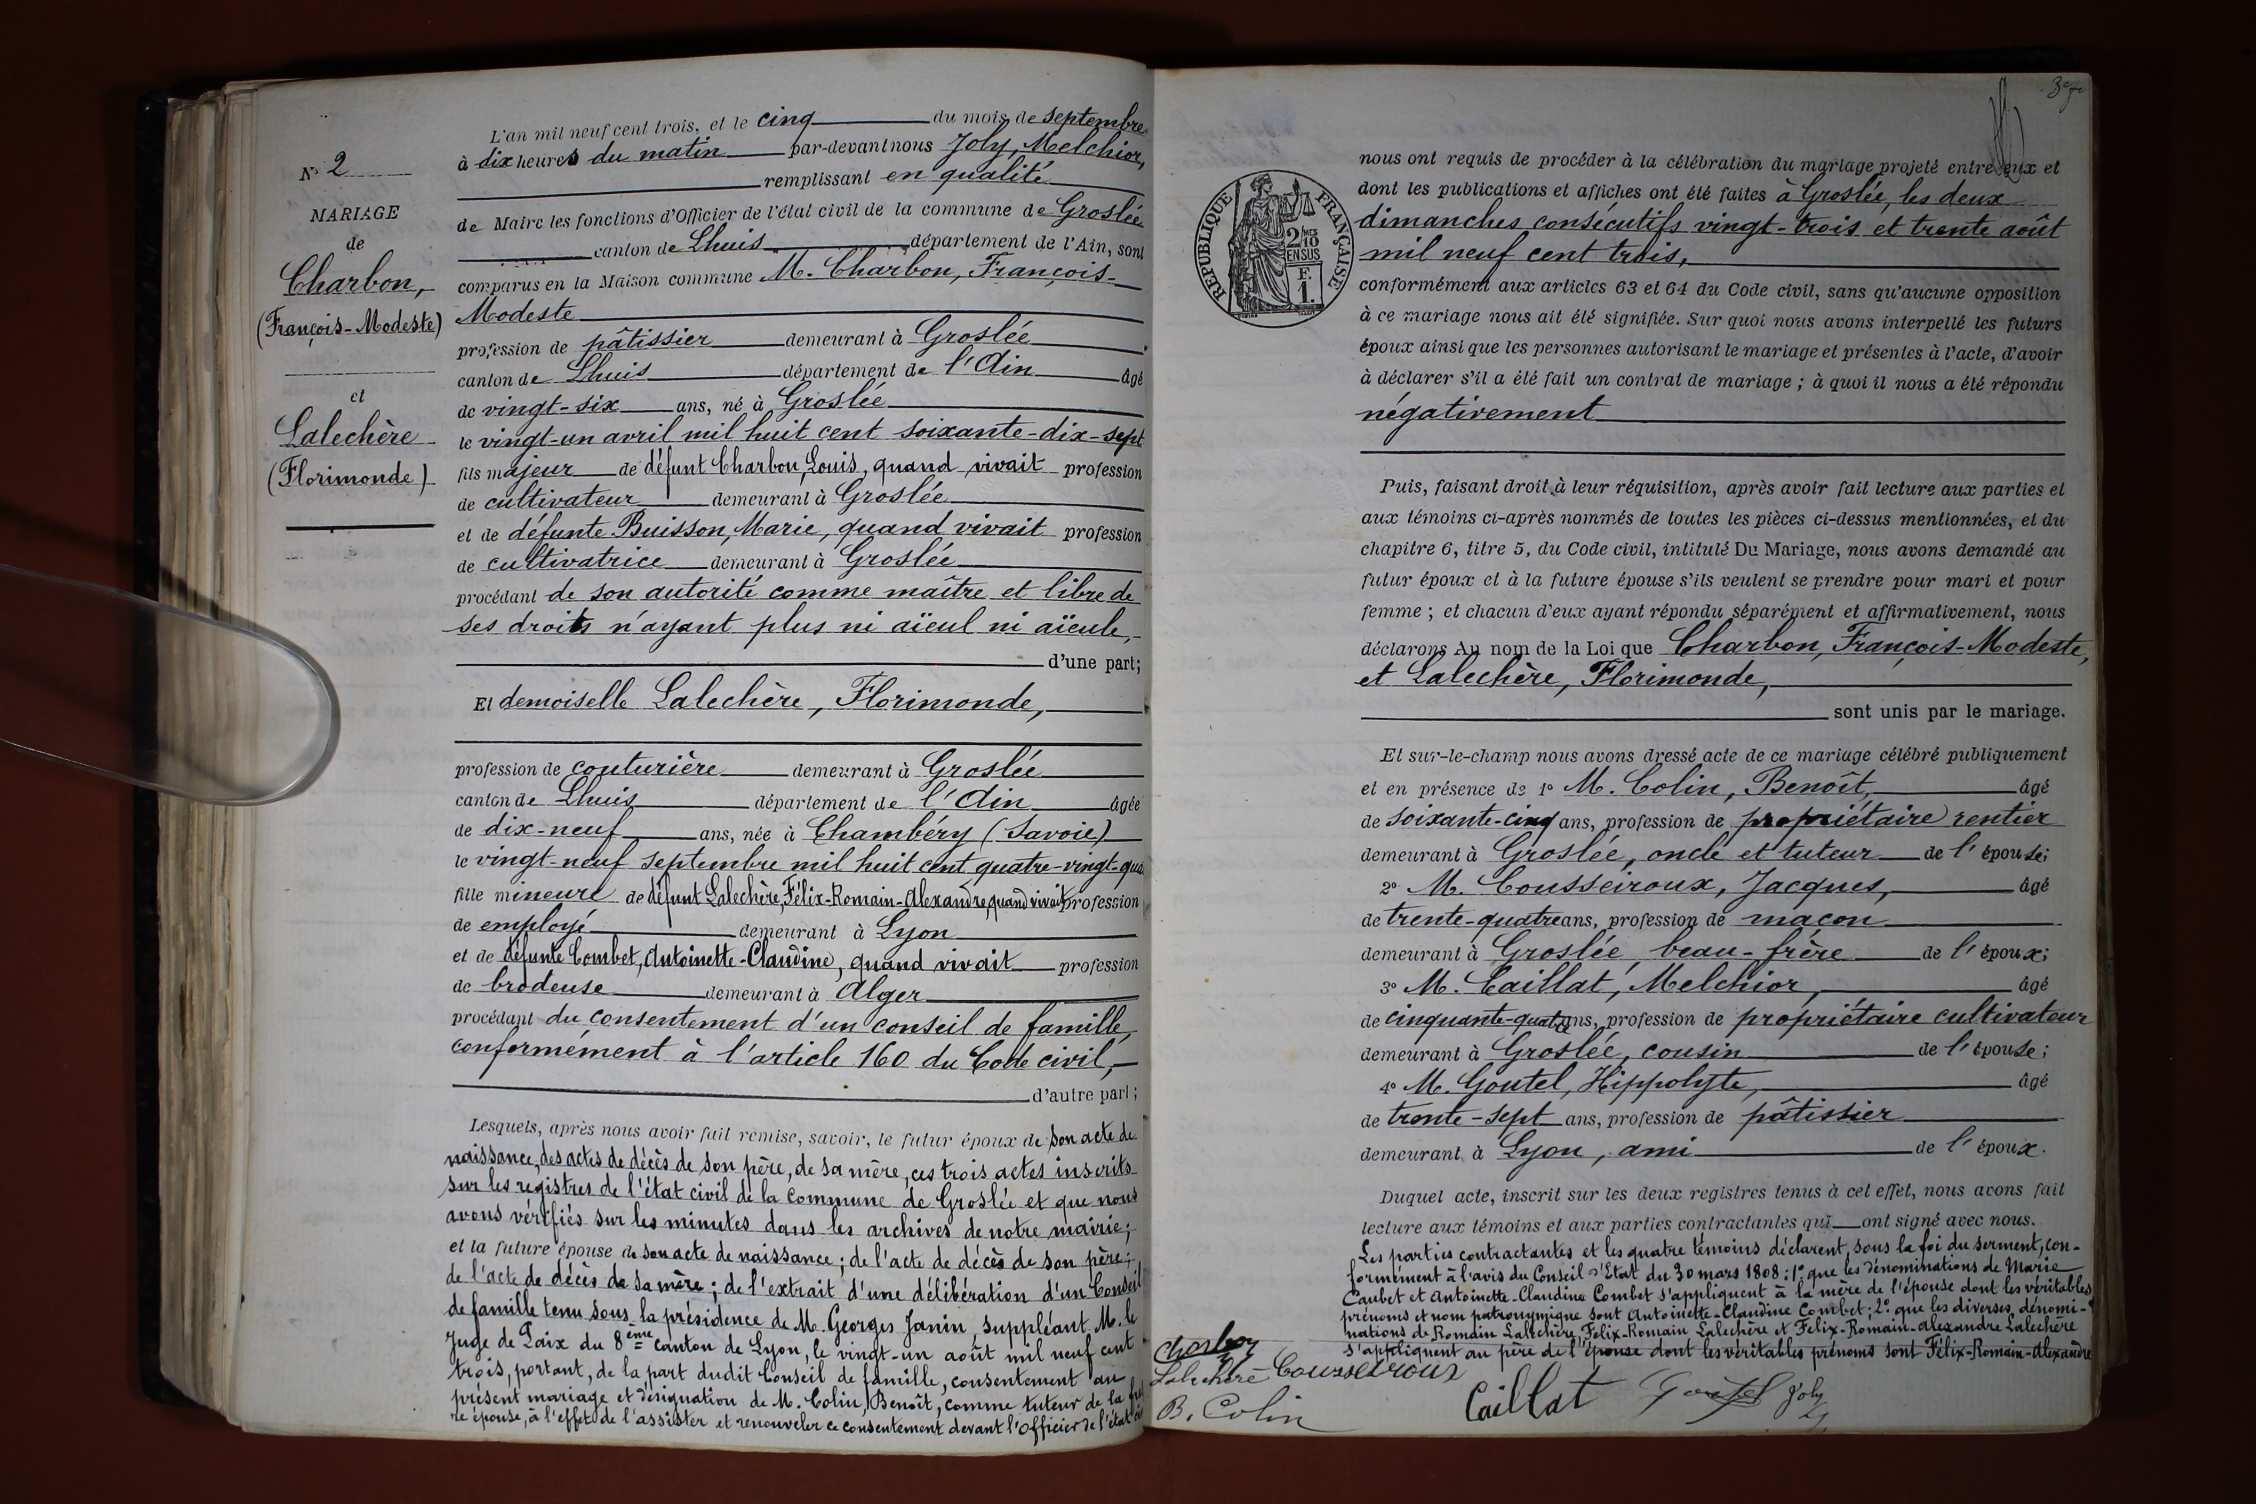 L'an mil neuf cent trois, et le cinq du mois de septembre
à dix heures du matin par-devant nous Joly, Melchior,
remplissant en qualité
de Maire les fonctions d'Officier de l'état civil de la commune de Groslée
canton de Lhuis département de l'Ain, sont
comparus en la Maison commune M. Charbon, François-
Modeste
profession de pâtissier demeurant à Groslée
canton de Lhuis département de l'Ain âgé
de vingt-six ans, né à Groslée
le vingt-un avril mil huit cent soixante-dix-sept
fils majeur de défunt Charbon, Louis, quand vivait profession
de cultivateur demeurant à Groslée
et de défunte Buisson, Marie, quand vivait profession
de cultivatrice demeurant à Groslée
procédant de son autorité comme maître et libre de
ses droits n'ayant plus ni aïeul ni aïeule,
d'une part;
Et demoiselle Lalechère, Florimonde,
profession de couturière demeurant à Groslée
canton de Lhuis département de l'Ain âgée
de dix-neuf ans, née à Chambéry (Savoie)
le vingt-neuf septembre mil huit cent quatre-vingt-qua
fille mineure de défunt Lalechère, Félix-Romain-Alexandre, quand vivait profession
de employé demeurant à Lyon
et de défunte Combet, Antoinette-Claudine, quand vivait profession
de brodeuse demeurant à Alger
procédant du consentement d'un conseil de famille,
conformément à l'article 160 du Code civil,
d'autre part;
Lesquels, après nous avoir fait remise, savoir, le futur époux de son acte de
naissance, des actes de décès de son père, de sa mère, ces trois actes inscrits
sur les registres de l'état civil de la commune de Groslée et que nous
avons vérifiés sur les minutes dans les archives de notre mairie;
et la future épouse de son acte de naissance; de l'acte de décès de son père;
de l'acte de décès de sa mère; de l'extrait d'une délibération d'un Conseil
de famille tenu sous la présidence de M. Georges Janin, suppléant M. le
Juge de Paix du 8ème canton de Lyon, le vingt-un août mil neuf cent
trois, portant, de la part dudit Conseil de famille, consentement au
présent mariage et désignation de M. Colin, Benoît, comme tuteur de la fu
re épouse, à l'effet de l'assister et renouveler ce consentement devant l'Officier de l'état
N° 2
MARIAGE
de
Charbon,
(François-Modeste)
et
Lalechère
(Florimonde)
RÉPUBLIQUE FRANÇAISE
2/10
EN SUS
F.
1.
nous ont requis de procéder à la célébration du mariage projeté entre eux et
dont les publications et affiches ont été faites à Groslée, les deux
dimanches consécutifs vingt-trois et trente août
mil neuf cent trois,
conformément aux articles 63 et 64 du Code civil, sans qu'aucune opposition
à ce mariage nous ait été signifiée. Sur quoi nous avons interpellé les futurs
époux ainsi que les personnes autorisant le mariage et présentes à l'acte, d'avoir
à déclarer s'il a été fait un contrat de mariage; à quoi il nous a été répondu
négativement
Puis, faisant droit à leur réquisition, après avoir fait lecture aux parties et
aux témoins ci-après nommés de toutes les pièces ci-dessus mentionnées, et du
chapitre 6, titre 5, du Code civil, intitulé Du Mariage, nous avons demandé au
futur époux et à la future épouse s'ils veulent se prendre pour mari et pour
femme; et chacun d'eux ayant répondu séparément et affirmativement, nous
déclarons Au nom de la Loi que Charbon, François-Modeste,
et Lalechère, Florimonde,
sont unis par le mariage.
Et sur-le-champ nous avons dressé acte de ce mariage célébré publiquement
et en présence de 1° M. Colin, Benoît, âgé
de soixante-cinq ans, profession de propriétaire rentier
demeurant à Groslée, oncle et tuteur de l'épouse;
2° M. Cousseiroux, Jacques, âgé
de trente-quatre ans, profession de maçon
demeurant à Groslée, beau-frère de l'époux;
3° M. Caillat, Melchior, âgé
de cinquante-quatre ans, profession de propriétaire cultivateur
demeurant à Groslée, cousin de l'épouse;
4° M. Goutel, Hippolyte, âgé
de trente-sept ans, profession de pâtissier
demeurant à Lyon, ami de l'époux.
Duquel acte, inscrit sur les deux registres tenus à cet effet, nous avons fait
lecture aux témoins et aux parties contractantes qui ont signé avec nous.
Les parties contractantes et les quatre témoins déclarent, sous la foi du serment, con-
formément à l'avis du Conseil d'Etat du 30 mars 1808: 1° que les dénominations de Marie
Caubet et Antoinette-Claudine Combet s'appliquent à la mère de l'épouse dont les véritables
prénoms et nom patronymique sont Antoinette-Claudine Combet; 2° que les diverses dénomi-
nations de Romain Lalechère, Félix-Romain Lalechère et Félix-Romain-Alexandre Lalechère
s'appliquent au père de l'épouse dont les véritables prénoms sont Félix-Romain-Alexandre
Charbon
Lalechère Cousseiroux
B. Colin
Caillat Goutel Joly